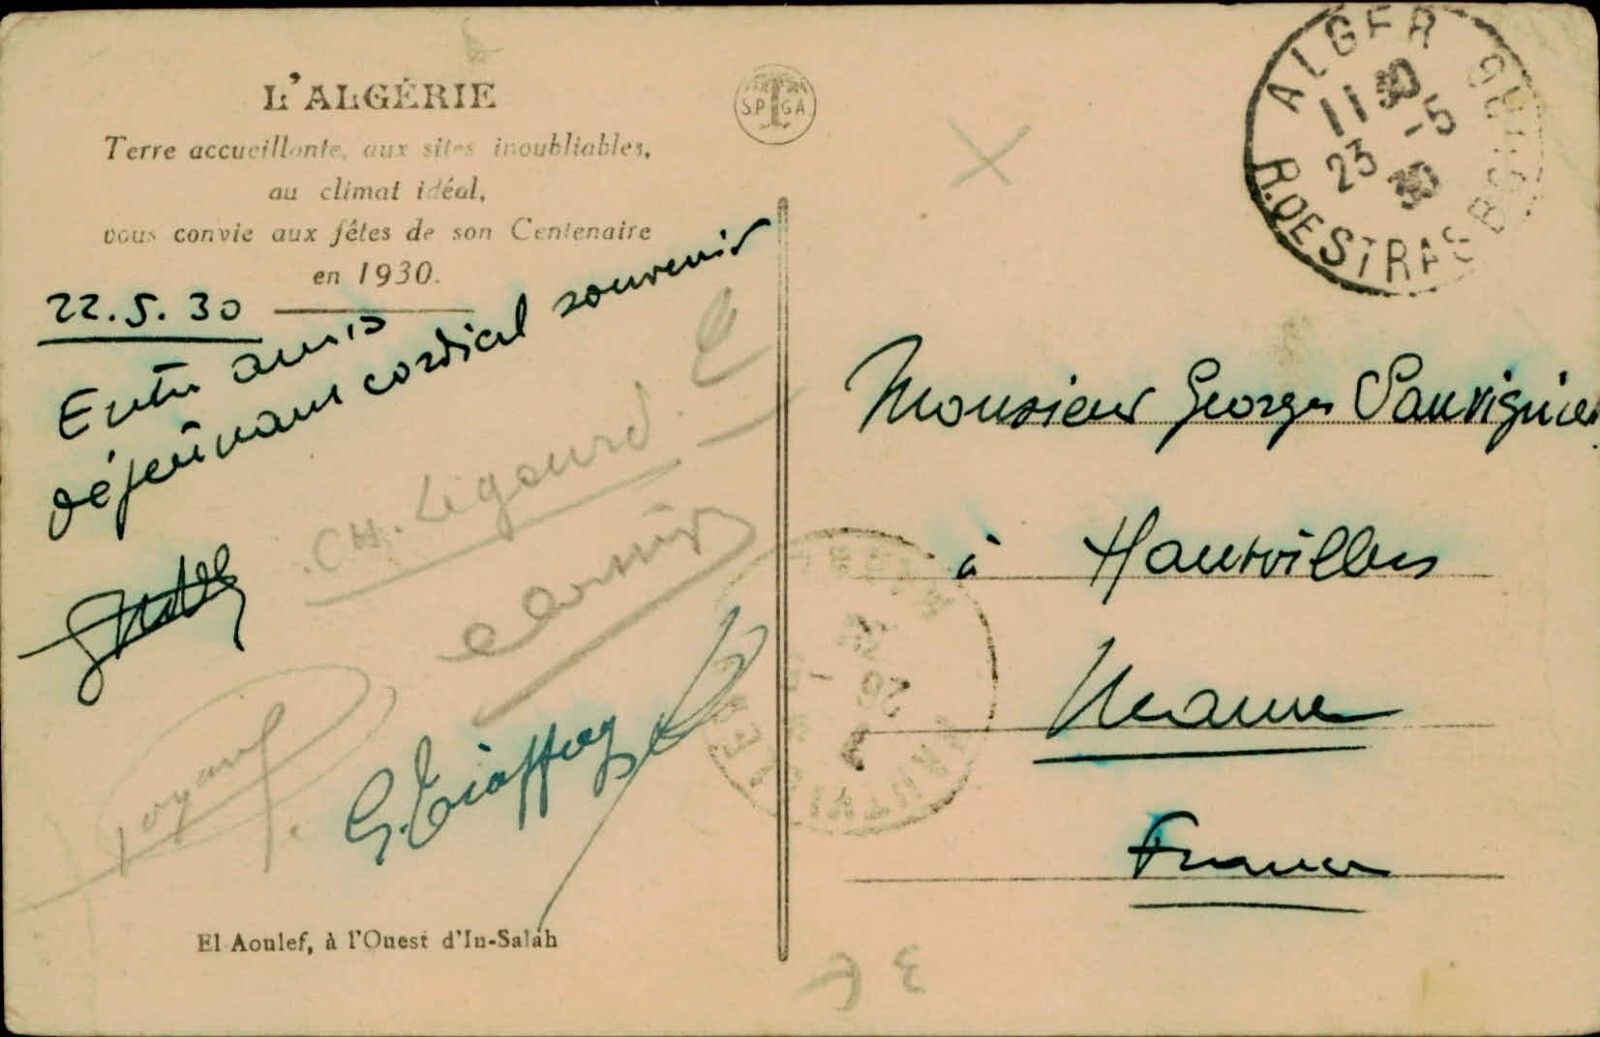 L'ALGÉRIE
Terre accueillante, aux sites inoubliables,
au climat idéal,
vous convie aux fêtes de son Centenaire
en 1930.
22.5.30
Entre amis
déjeûnant cordial souvenir
CH. Ligourd
El Aoulef, à l'Ouest d'In-Salah
S.P GA
ALGER
R. DE STRASBOURG
11
23 -5
Monsieur Georges Sauvignier
à Hautvillers
Marne
France
HAUTVILLERS
MARNE
3 F